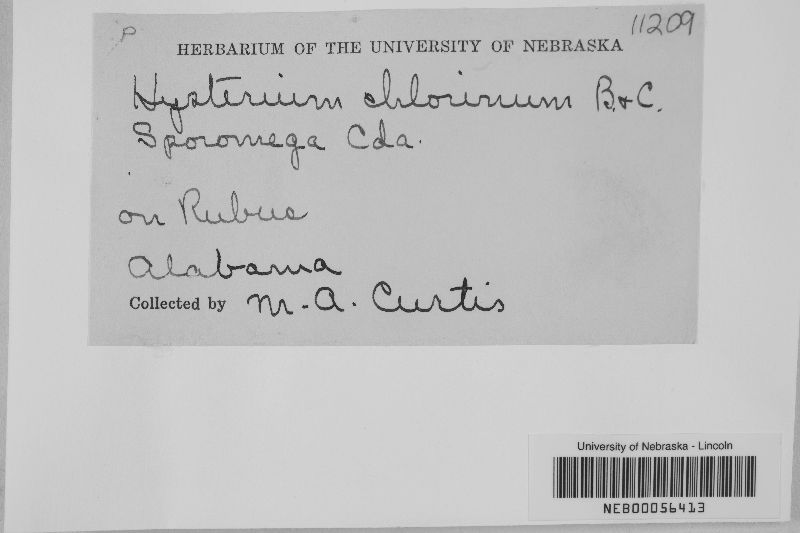 P 11209
HERBARIUM OF THE UNIVERSITY OF NEBRASKA
Hysterium chlorinum B. & C.
Sporomega Cda.
on Rubus
Alabama
Collected by M. A. Curtis
University of Nebraska - Lincoln
NEB00056413